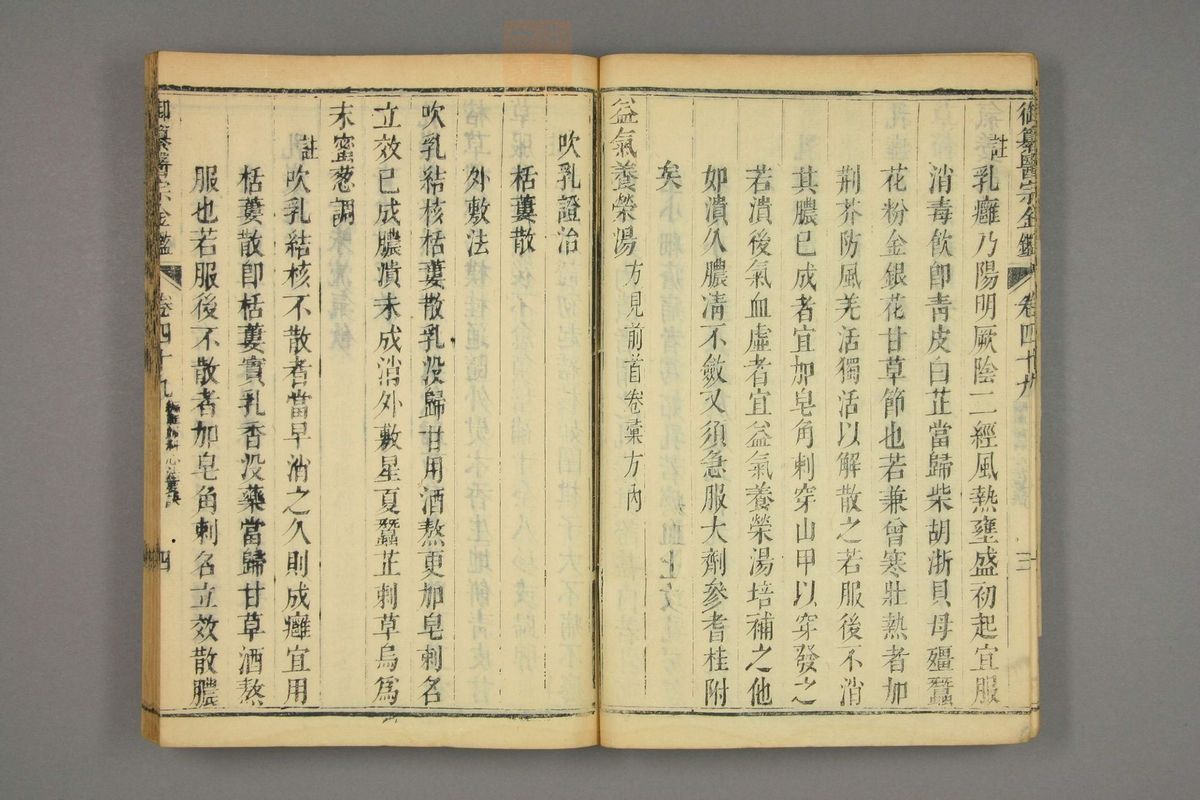 御纂醫宗金鑑 卷四十九 三
註 乳癰乃陽明厥陰二經風熱壅盛初起宜服
消毒飲卽靑皮白芷當歸柴胡浙貝母殭蠶
花粉金銀花甘草節也若兼曾寒壯熱者加
荆芥防風羌活獨活以解散之若服後不消
其膿已成者宜加皂角刺穿山甲以穿發之
若潰後氣血虛者宜益氣養榮湯培補之他
如潰久膿淸不斂又須急服大劑參耆桂附
矣
益氣養榮湯 方見前首卷彙方內
吹乳證治
栝蔞散
外敷法
吹乳結核栝蔞散乳没歸甘用酒熬更加皂刺名
立效已成膿潰未成消外敷星夏蠶芷刺草烏爲
末蜜葱調
註 吹乳結核不散者當早消之久則成癰宜用
栝蔞散卽栝蔞實乳香没藥當歸甘草酒熬
服也若服後不散者加皂角刺名立效散膿
御纂醫宗金鑑 卷四十九 編輯婦科心法要訣 四